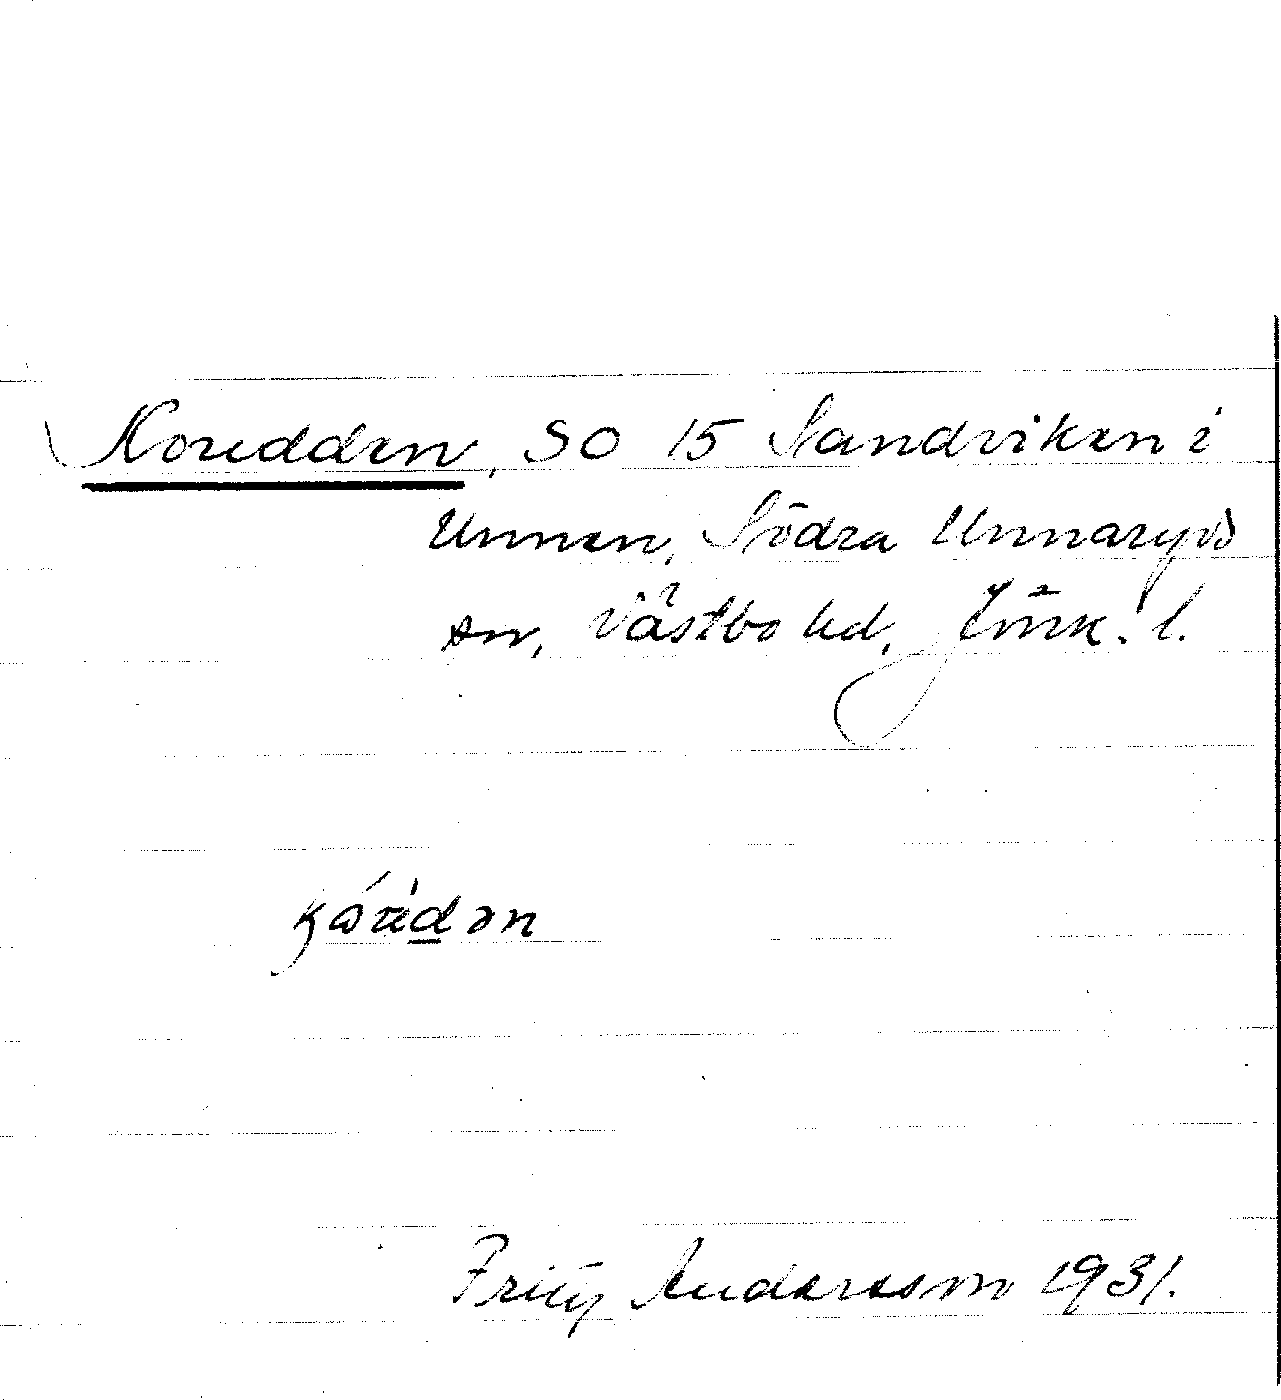 Koredden, SO 15 Sandviken i
Unnen, Södra Unnaryds
sn, Västbo hd, Jönk. l.
Fritz Andersson 1931.